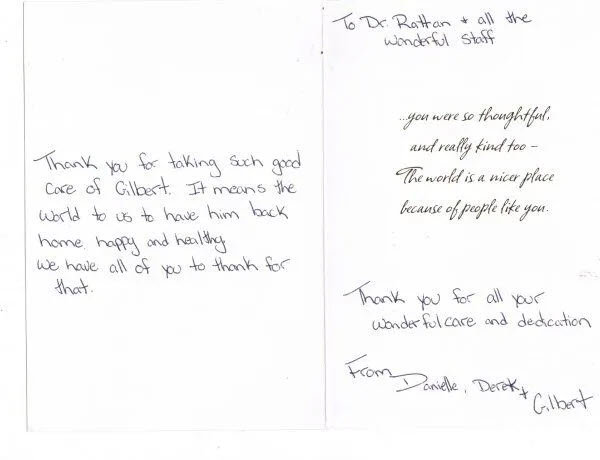 Thank you for taking such good
care of Gilbert. It means the
world to us to have him back
home happy and healthy
we have all of you to thank for
that.
To Dr. Rattan + all the
wonderful staff
...you were so thoughtful,
and really kind too –
The world is a nicer place
because of people like you.
Thank you for all your
wonderful care and dedication
From
Danielle, Derek +
Gilbert